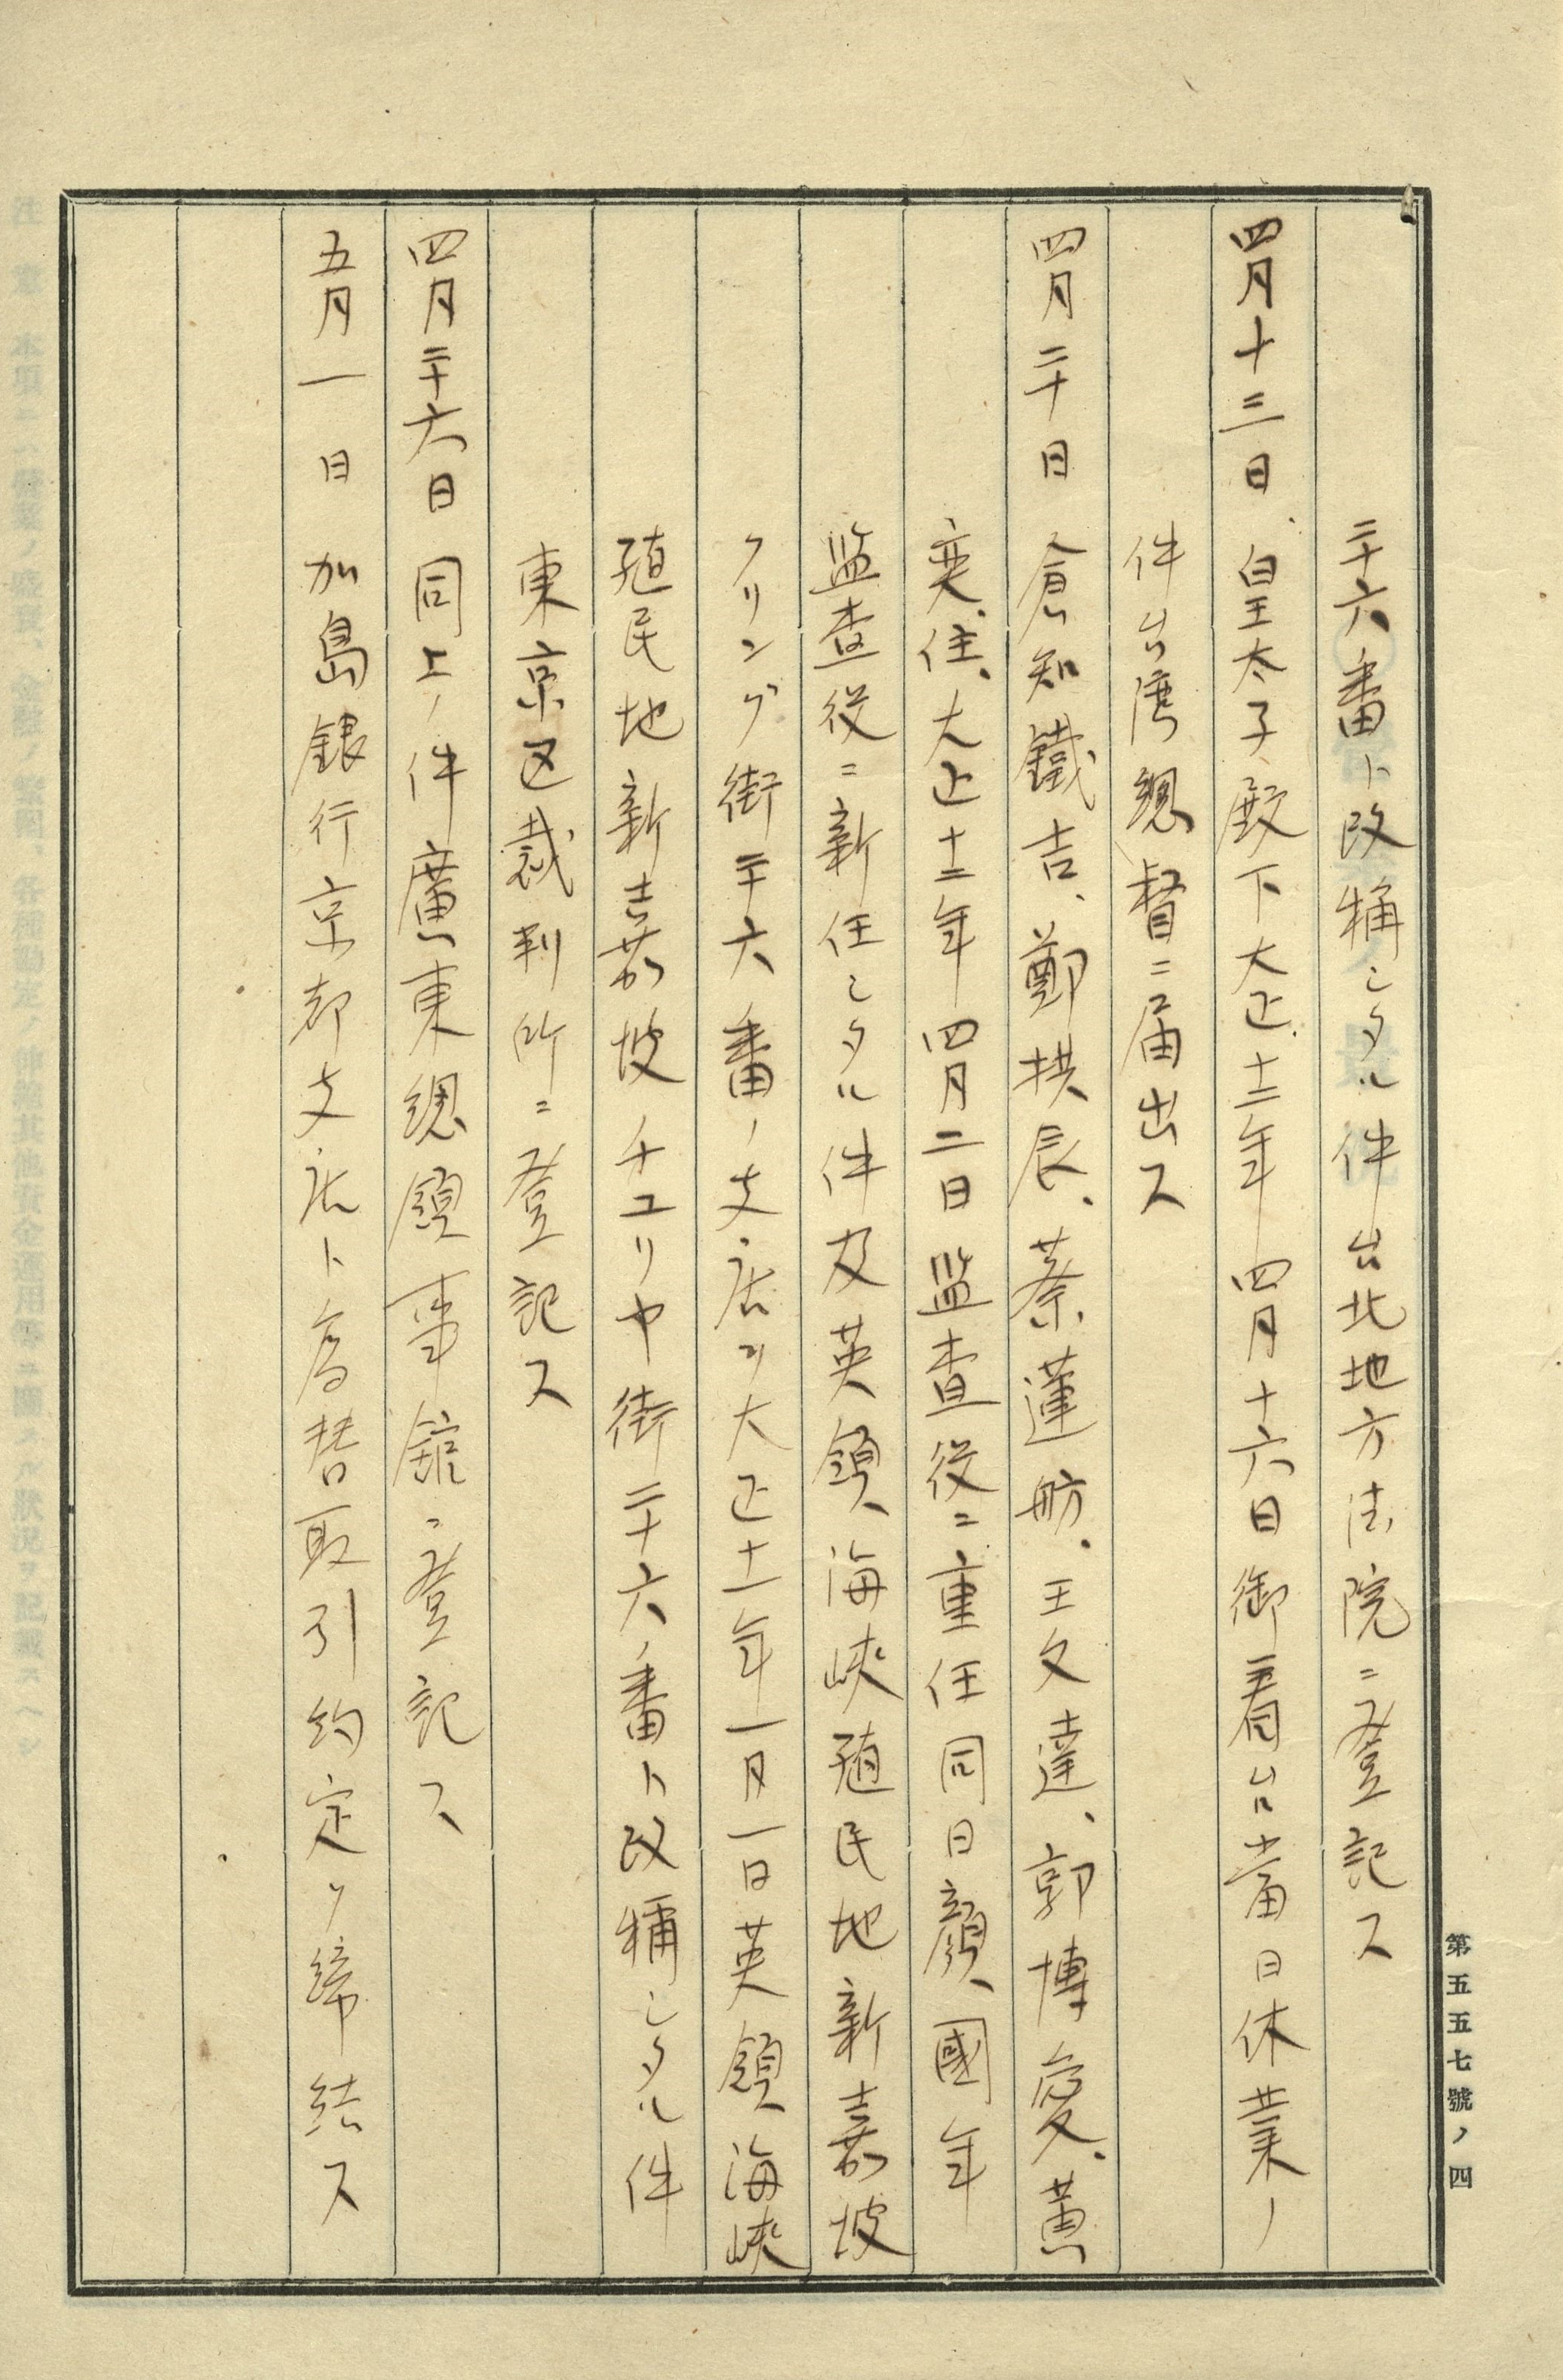 二十六番ト改稱シタル件台北地方法院ニ登記ス
四月十三日、皇太子殿下大正十二年四月十六日御着台当日休業ノ
件台湾總督ニ届出ス
四月二十日 倉知鐵吉、鄭拱辰、蔡蓮舫、王文達、郭博愛、黄
奕住、大正十二年四月二日監査役ニ重任同日顏國年
監査役ニ新任シタル件及英領海峡殖民地新嘉坡
クリング街二十六番ノ支店ヲ大正十一年一月一日英領海峡
殖民地新嘉坡チユリヤ街二十六番ト改稱シタル件
東京区裁判所ニ登記ス
四月二十六日 同上ノ件廣東總領事舘ニ登記ス
五月一日 加島銀行京都支店ト為替取引約定ヲ締結ス
第五五七號ノ四